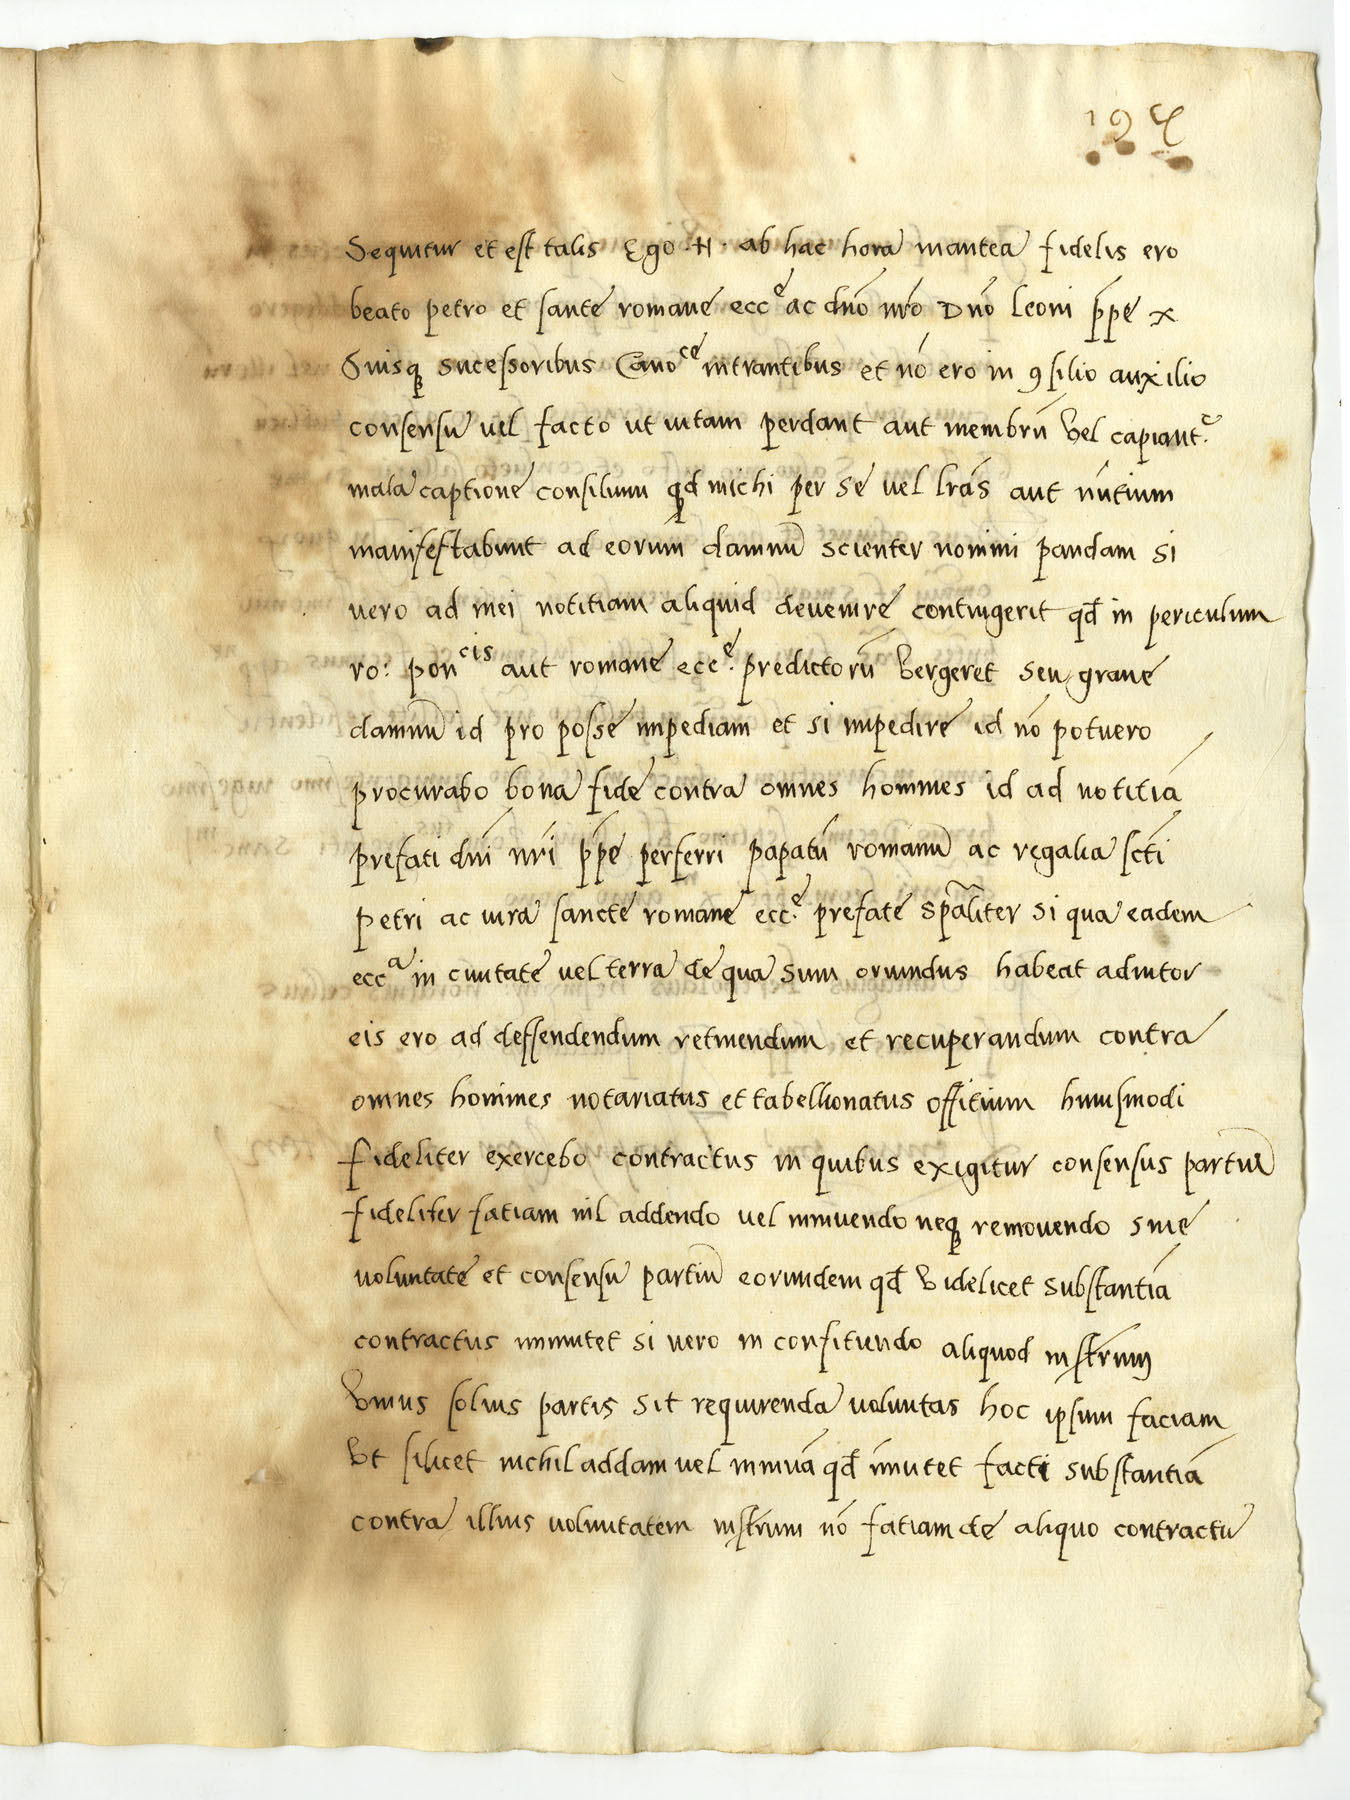 124
Sequitur et est talis Ego .N. ab hac hora inantea fidelis ero
beato petro et sante romane ecc^e ac dno nro Dno leoni ppe x
Suisq sucessoribus Cano^ce intrantibus et no ero in 9silio auxilio
consensu vel facto ut vitam perdant aut membru vel capiant^r
mala captione consilium qd michi per se vel lras aut nutium
manifestabunt ad eorum damnu scienter nomini pandam si
vero ad mei notitiam aliquid devenire contingerit qd in periculum
ro: pon^cis aut romane ecc^e. predictoru vergeret seu grave
damnu id pro posse impediam et si impedire id no potuero
procurabo bona fide contra omnes homines id ad notitia
prefati dni nri ppe perferri papatu romanu ac regalia scti
petri ac iura sancte romane ecc^e. prefate spaliter si qua eadem
ecc^a in civitate vel terra de qua sum oriundus habeat adiutor
eis ero ad deffendendum retinendum et recuperandum contra
omnes homines notariatus et tabellionatus offitium huiusmodi
fideliter exercebo contractus in quibus exigitur consensus partiu
fideliter fatiam nil addendo vel minuendo neq removendo sine
voluntate et consensu partiu eorundem qd videlicet substantia
contractus immutet si vero in confitiendo aliquod instrum
Unius solius partis sit requirenda voluntas hoc ipsum faciam
Ut silicet nichil addam vel minua qd imutet facti substantia
contra illius voluntatem instrum no fatiam de aliquo contractu